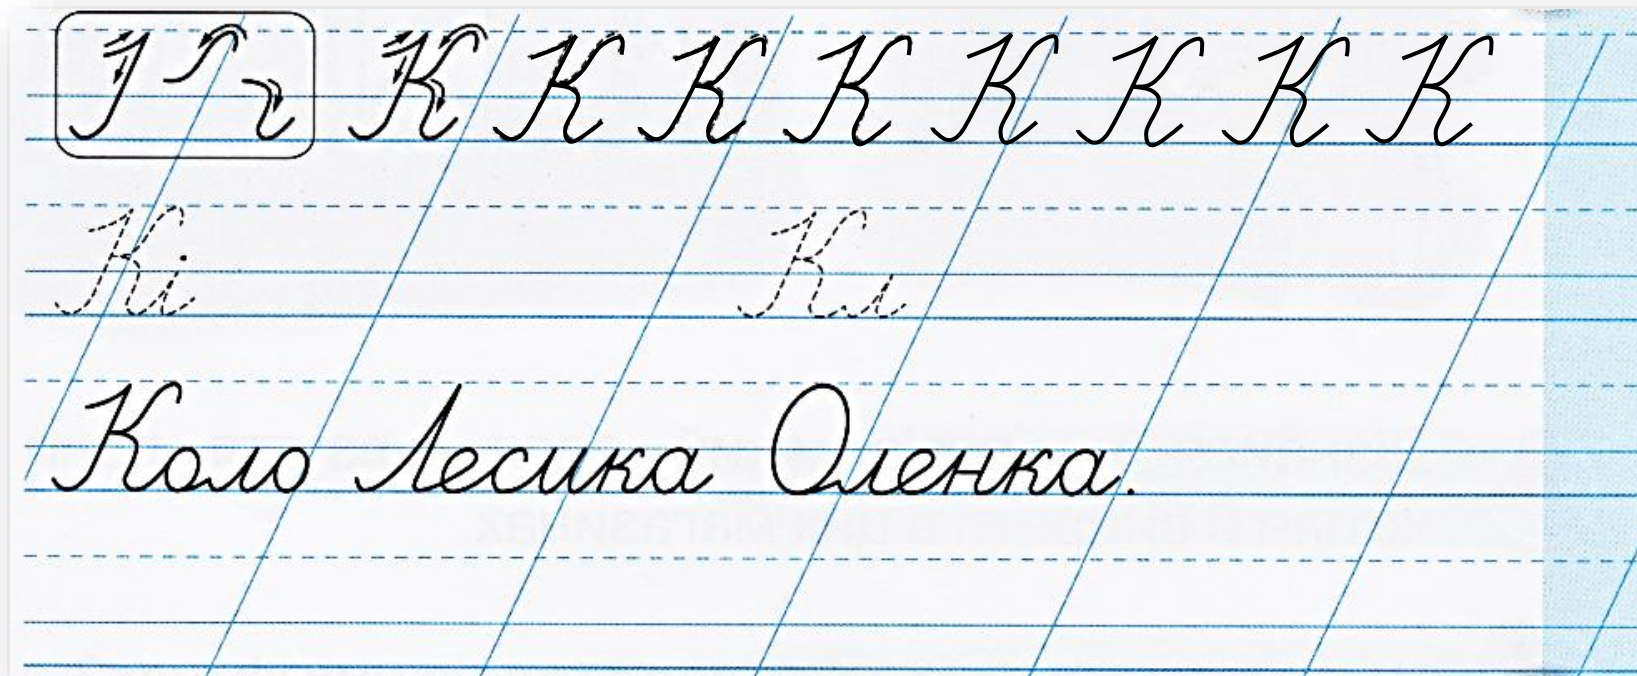 К К К К К К К К К
Кі Кл
Коло Лесика Оленка.